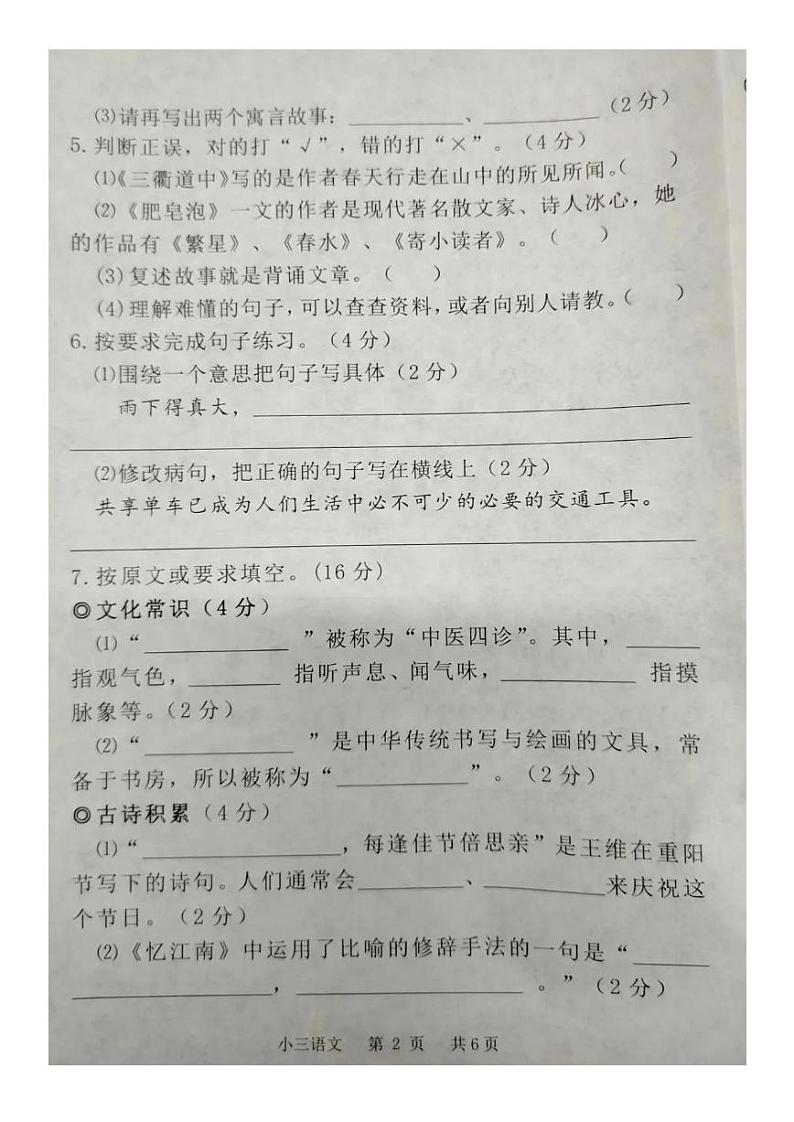 ⑶请再写出两个寓言故事：__________、__________（2 分）
5. 判断正误，对的打“√”，错的打“×”。（4 分）
⑴《三衢道中》写的是作者春天行走在山中的所见所闻。(   )
⑵《肥皂泡》一文的作者是现代著名散文家、诗人冰心，她
的作品有《繁星》、《春水》、《寄小读者》。(   )
(3) 复述故事就是背诵文章。(   )
(4) 理解难懂的句子，可以查查资料，或者向别人请教。(   )
6. 按要求完成句子练习。（4 分）
⑴围绕一个意思把句子写具体（2 分）
雨下得真大，__________
⑵修改病句，把正确的句子写在横线上（2 分）
共享单车已成为人们生活中必不可少的必要的交通工具。
7. 按原文或要求填空。(16 分)
◎文化常识（4 分）
⑴“__________”被称为“中医四诊”。其中，______
指观气色，________指听声息、闻气味，__________指摸
脉象等。（2 分）
⑵“__________”是中华传统书写与绘画的文具，常
备于书房，所以被称为“__________”。（2 分）
◎古诗积累（4 分）
⑴“__________，每逢佳节倍思亲”是王维在重阳
节写下的诗句。人们通常会________、__________来庆祝这
个节日。（2 分）
⑵《忆江南》中运用了比喻的修辞手法的一句是“______
__________，__________。”（2 分）
小三语文 第 2 页 共 6 页